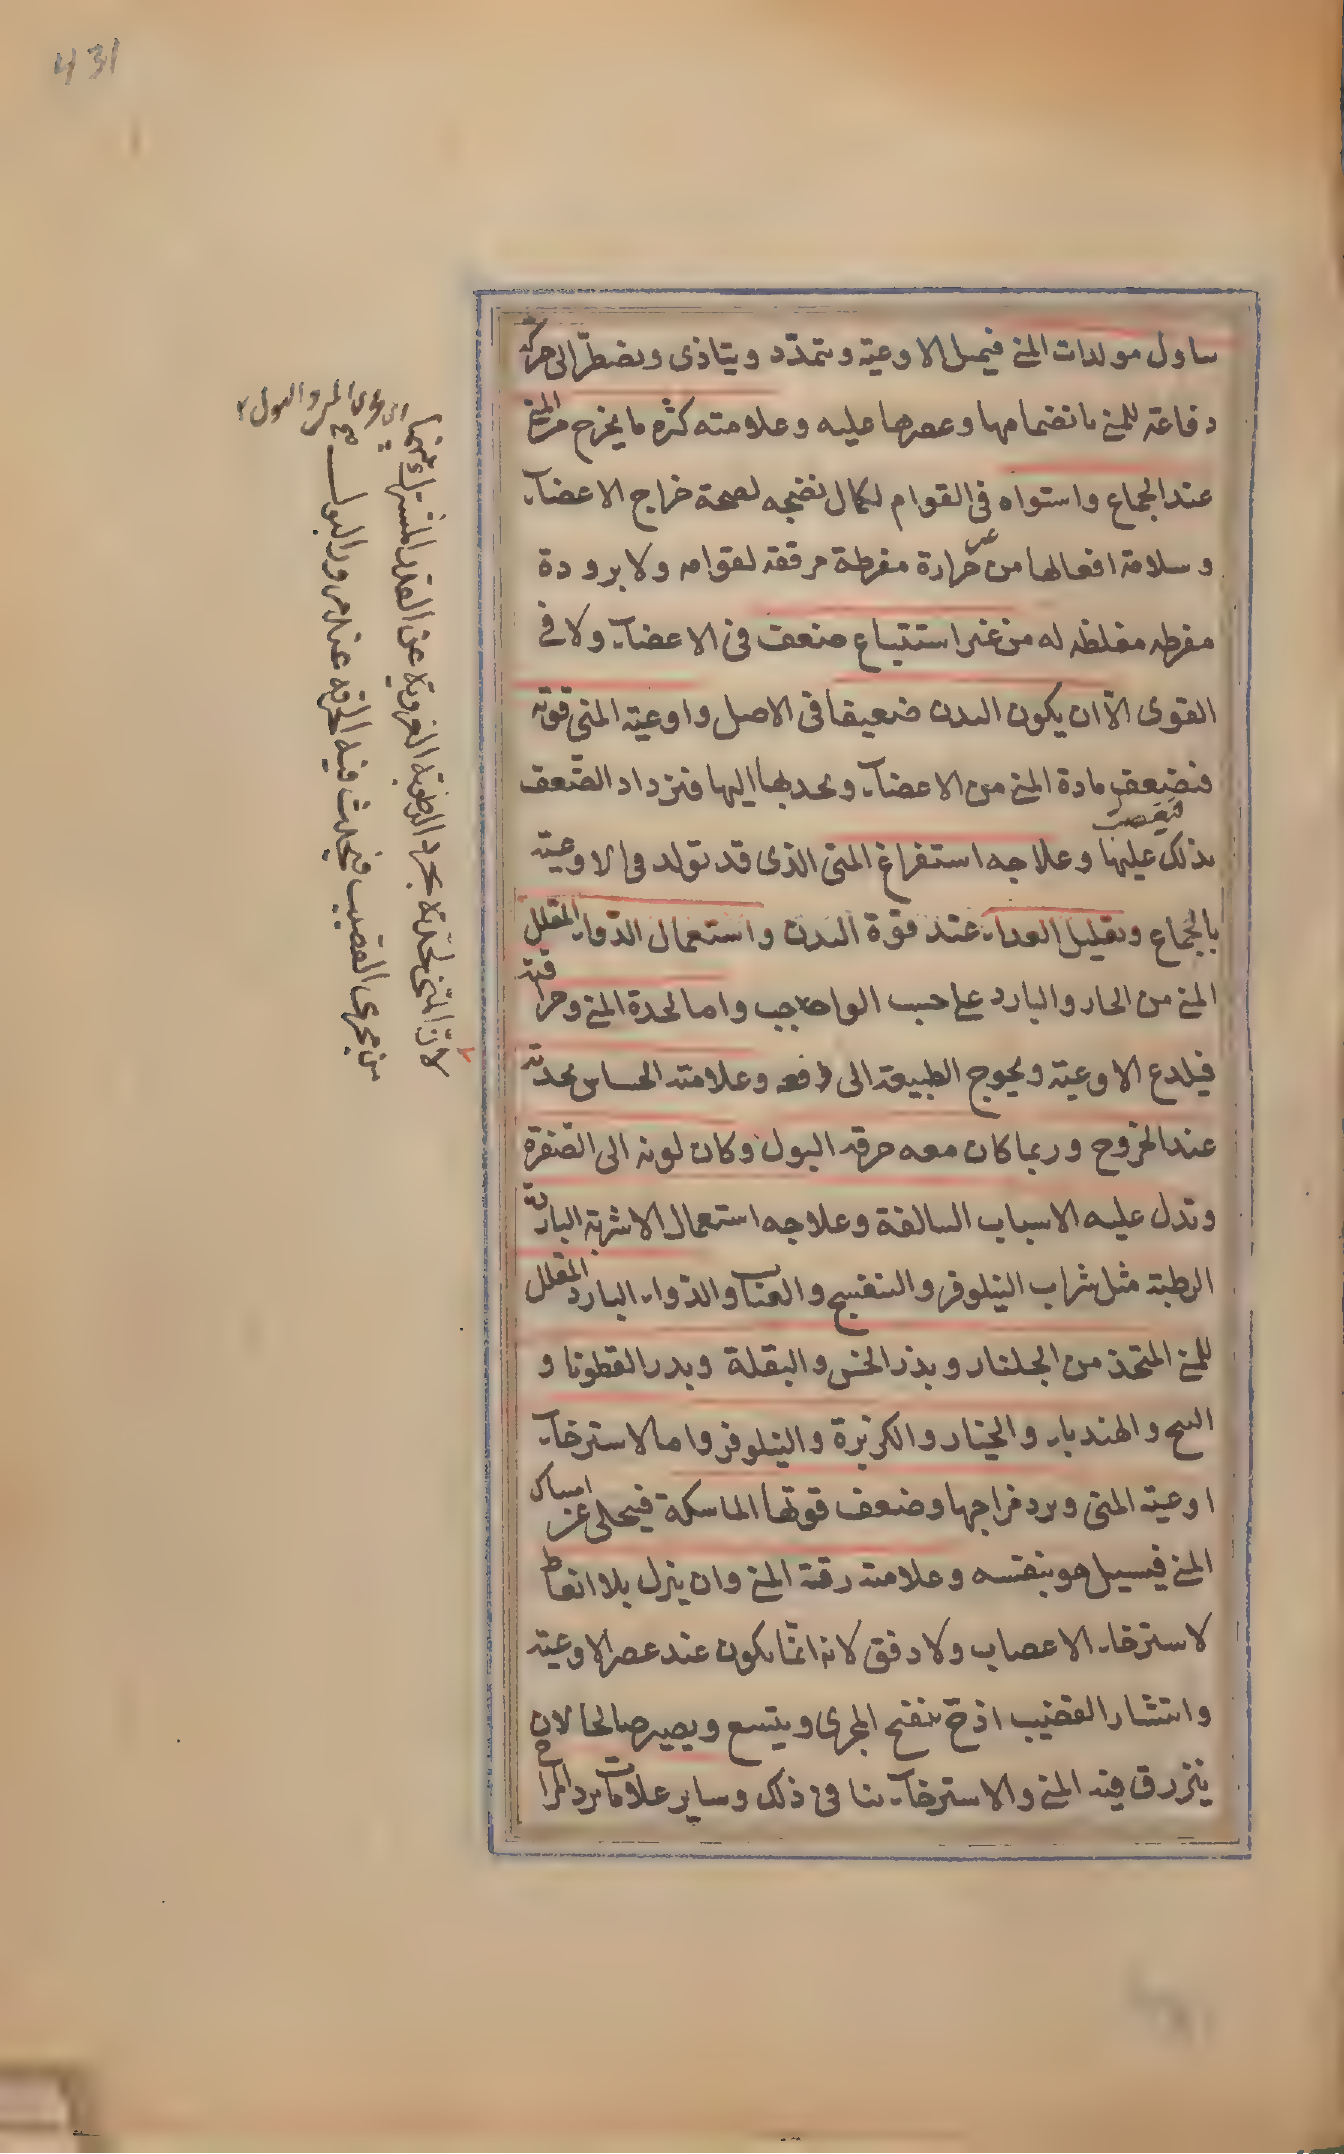 431
تناول مولدات المنى فيمتلى الاوعية وتتمدّد ويتاذى ويضطرّ الى حركة
دفاعة للمنى بانضمامها وعصرها عليه وعلامته كثرة ما يخرج من المنى
عند الجماع واستواه فى القوام لكمال نضجه لصحة مزاج الاعضاء
وسلامة افعالها من غير حرارة مفرطة مرققة لقوامه ولا برودة
مفرطه مغلظه له من غير استتباع ضعف فى الاعضاء ولا فى
القوى الاّ ان يكون البدن ضعيفا فى الاصل واوعية المنى قوية
فتضعف مادة المنى من الاعضاء وتجذبها اليها فيزداد الضّعف
بذلك عليها وعلاجه استفراغ المنى الذى قد تولد فى الاوعية
بالجماع وتقليل الغداء عند قوة البدن واستعمال الدّواء المقلل
المنى من الحار والبارد على حسب الواجب واما لحدة المنى وحراقته
فيلدع الاوعية ويحوج الطبيعة الى دفعه وعلامته الحساس بحدته
عند الخروج وربما كان معه حرقة البول وكان لونه الى الصّفرة
وتدل عليه الاسباب السالفة وعلاجه استعمال الاشربة الباردة
الرطبة مثل شراب النيلوفر والبنفسج والعناب والدّواء البارد المقلل
للمنى المتخذ من الجلنار وبذر الخس والبقلة وبذر القطونا و
البنج والهندباء والخيار والكزبرة والنيلوفر واما لاسترخاء
اوعية المنى وبرد مزاجها وضعف قوتها الماسكة فيخلى عن امساك
المنى فيسيل هو بنفسه وعلامته رقة المنى وان ينزل بلا انعاظ
لاسترخاء الاعصاب ولا دفق لانه انّما يكون عند عصر الاوعية
وانتشار القضيب اذ ح ينفتح المجرى ويتسع ويصير صالحا لان
ينزرق فيه المنى والاسترخاء ينافى ذلك وساير علامات برد المزاج
لانّ المنى لحدّته يجرد الرطوبة الغروية عن الغدد المشتركة بينهما
اى مجرى المنى والبول
من مجرى القضيب فيحدث فيه الحرقة عند مرور البول